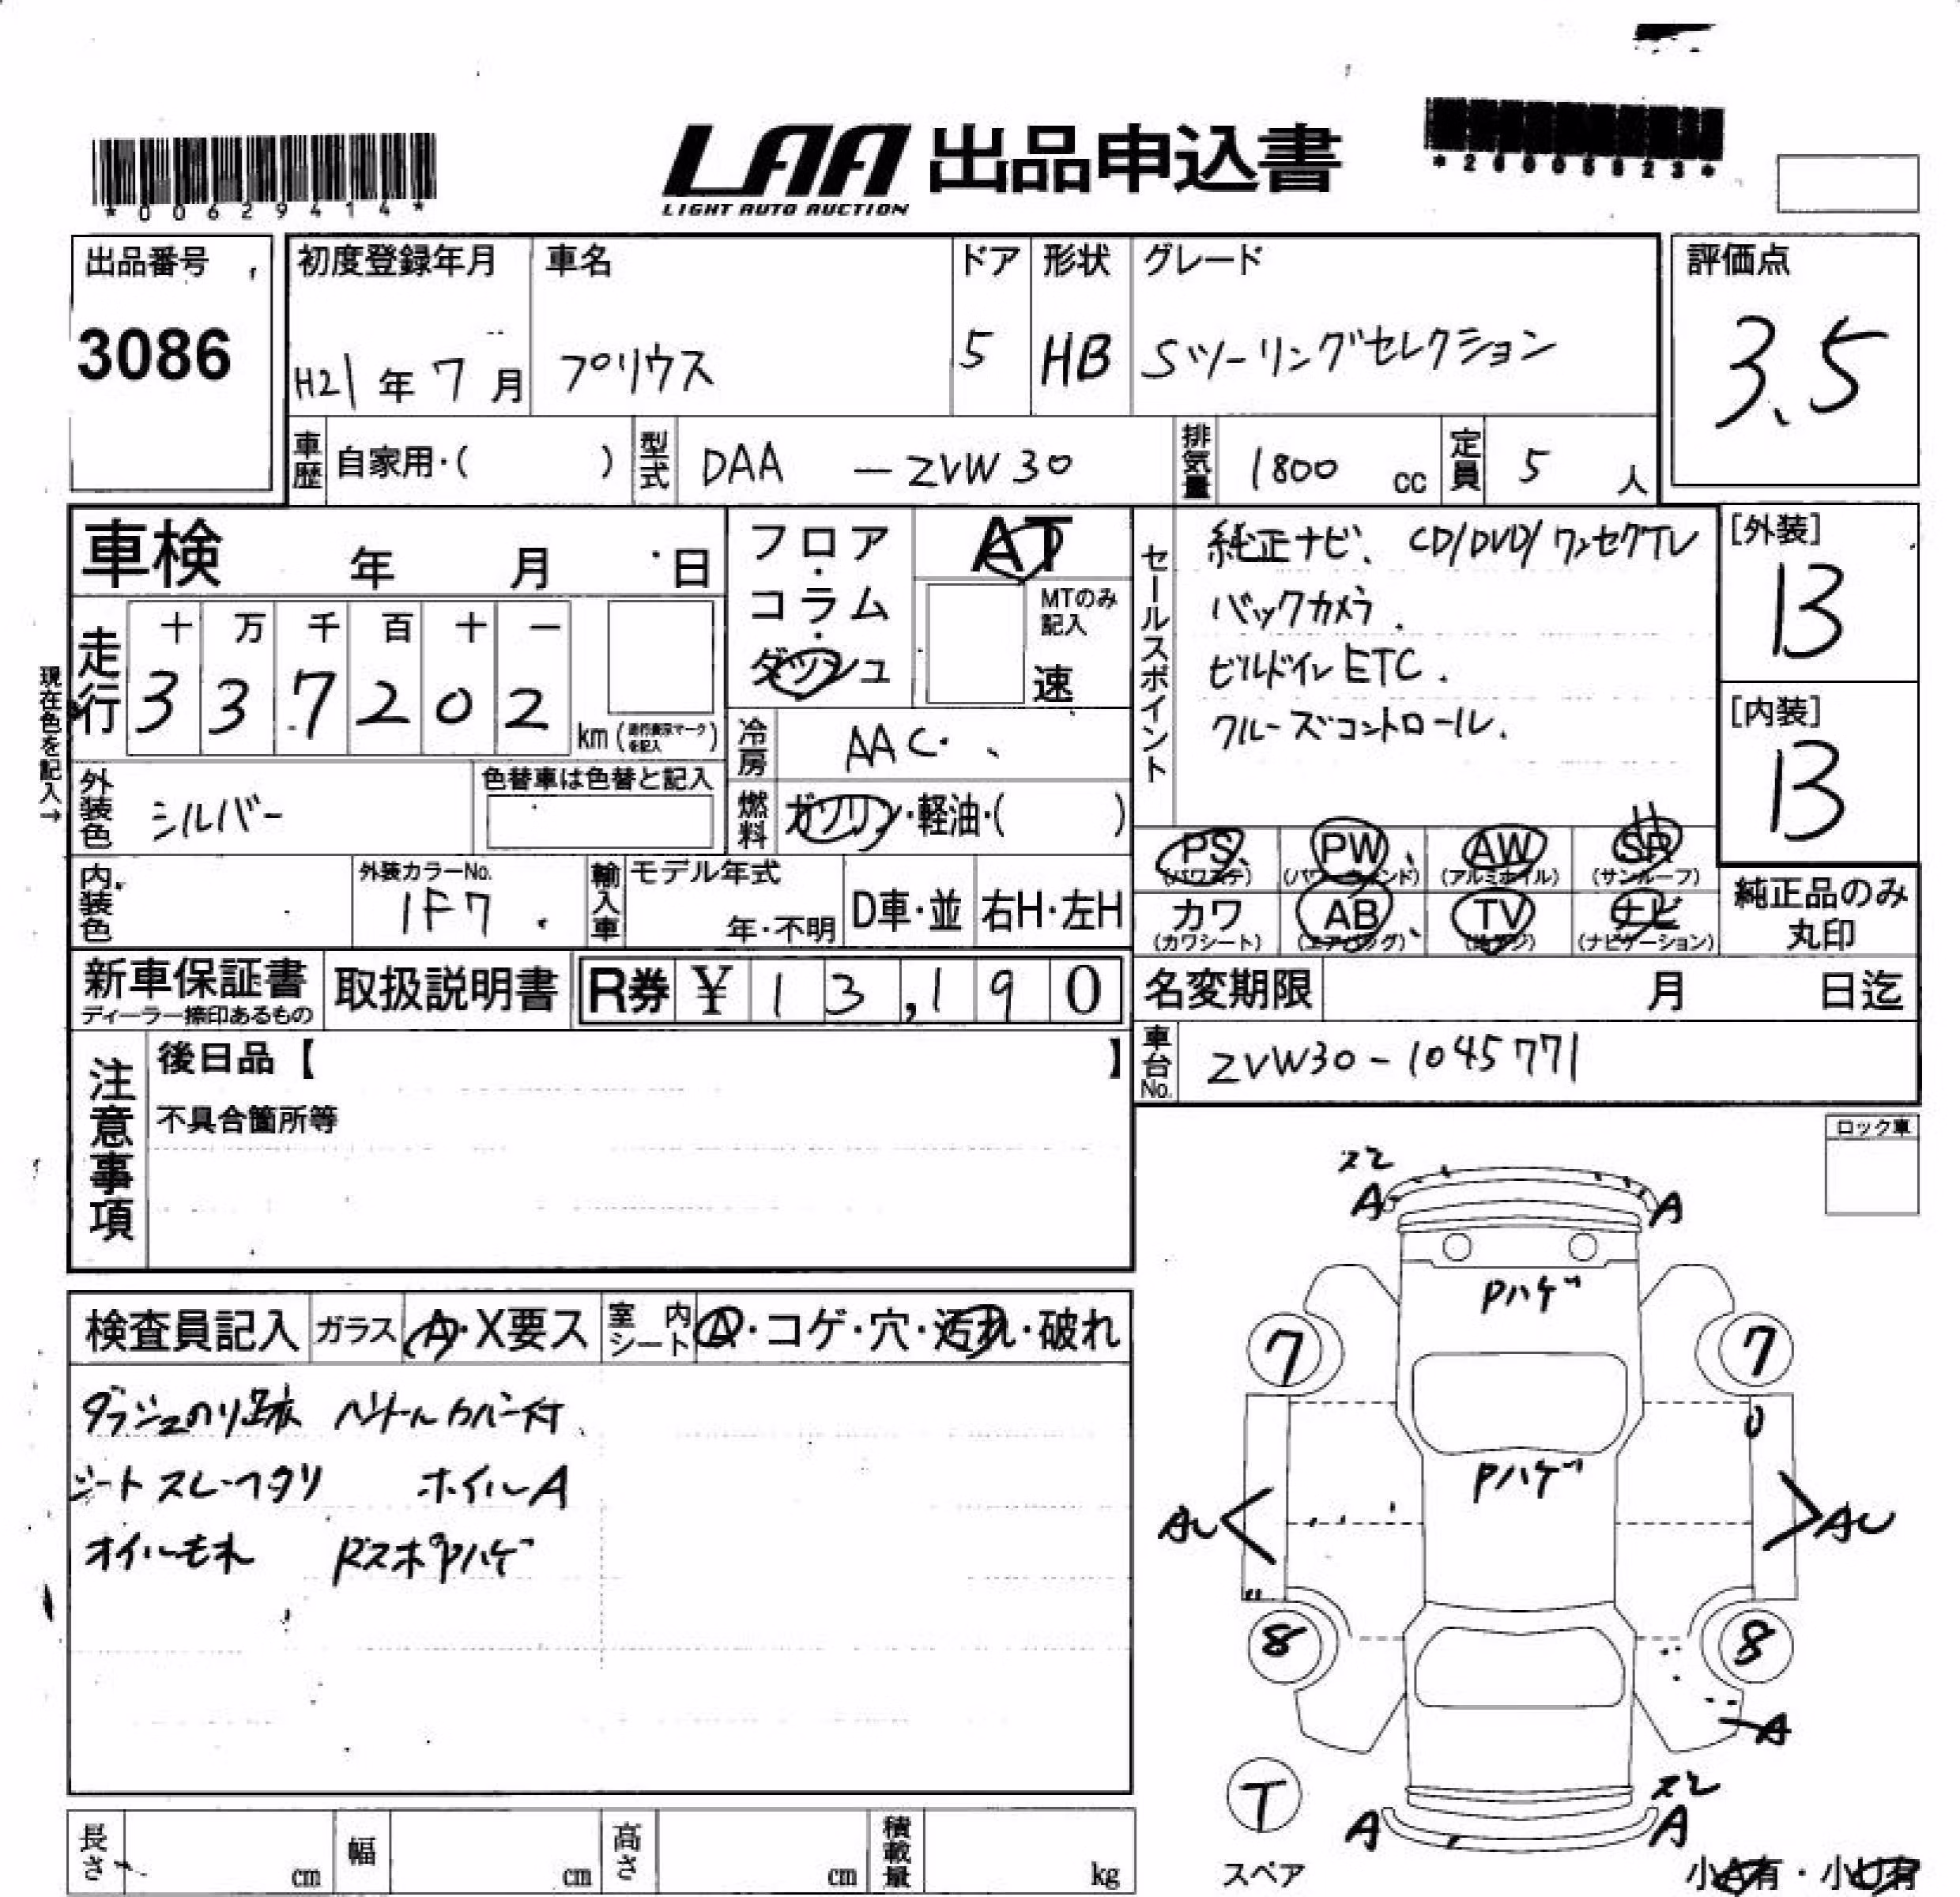 *00629414*
LAA 出品申込書
LIGHT AUTO AUCTION
出品番号
3086
初度登録年月
H21年7月
車名
プリウス
ドア
5
形状
HB
グレード
Sツーリングセレクション
評価点
3.5
車歴 自家用・( )
型式 DAA - ZVW30
排気量 1800 cc
定員 5 人
車検 年 月 日
フロア・コラム・ダッシュ
AT
MTのみ記入
速
走行
十 万 千 百 十 一
3 3 7 2 0 2 km
現在色を記入→
冷房 AAC
燃料 ガソリン・軽油・( )
セールスポイント
純正ナビ、CD/DVD/ワンセグTV
バックカメラ.
ビルドインETC.
クルーズコントロール.
[外装]
B
[内装]
B
外装色 シルバー
色替車は色替と記入
内装色
外装カラーNo.
1F7
輸入車 モデル年式
年・不明
D車・並 右H・左H
PS PW AW SR
(パワステ) (パワーウィンド) (アルミホイル) (サンルーフ)
カワ AB TV ナビ
(カワシート) (エアバッグ) (ナビゲーション)
純正品のみ
丸印
新車保証書
ディーラー捺印あるもの
取扱説明書
R券 ¥ 13,190
名変期限 月 日迄
車台No. ZVW30-1045771
注意事項
後日品【 】
不具合箇所等
ロック車
検査員記入 ガラス A・X要ス 室内シート A・コゲ・穴・汚れ・破れ
ダッシュのり跡 ハンドルカバー付
シートスレ・ヘタリ ホイルA
オイルもれ RスポPハゲ
スレ
A A
Pハゲ
7 7
Pハゲ
AU AU
8 8
A
T
スペア
スレ
A A
小A有・小U有
長さ cm 幅 cm 高さ cm 積載量 kg